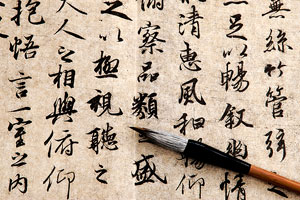 無絲竹管弦
足以暢叙幽情
清惠風和暢仰
俯察品類之盛
足以極視聽之
夫人之相與俯仰
抱悟言一室之内